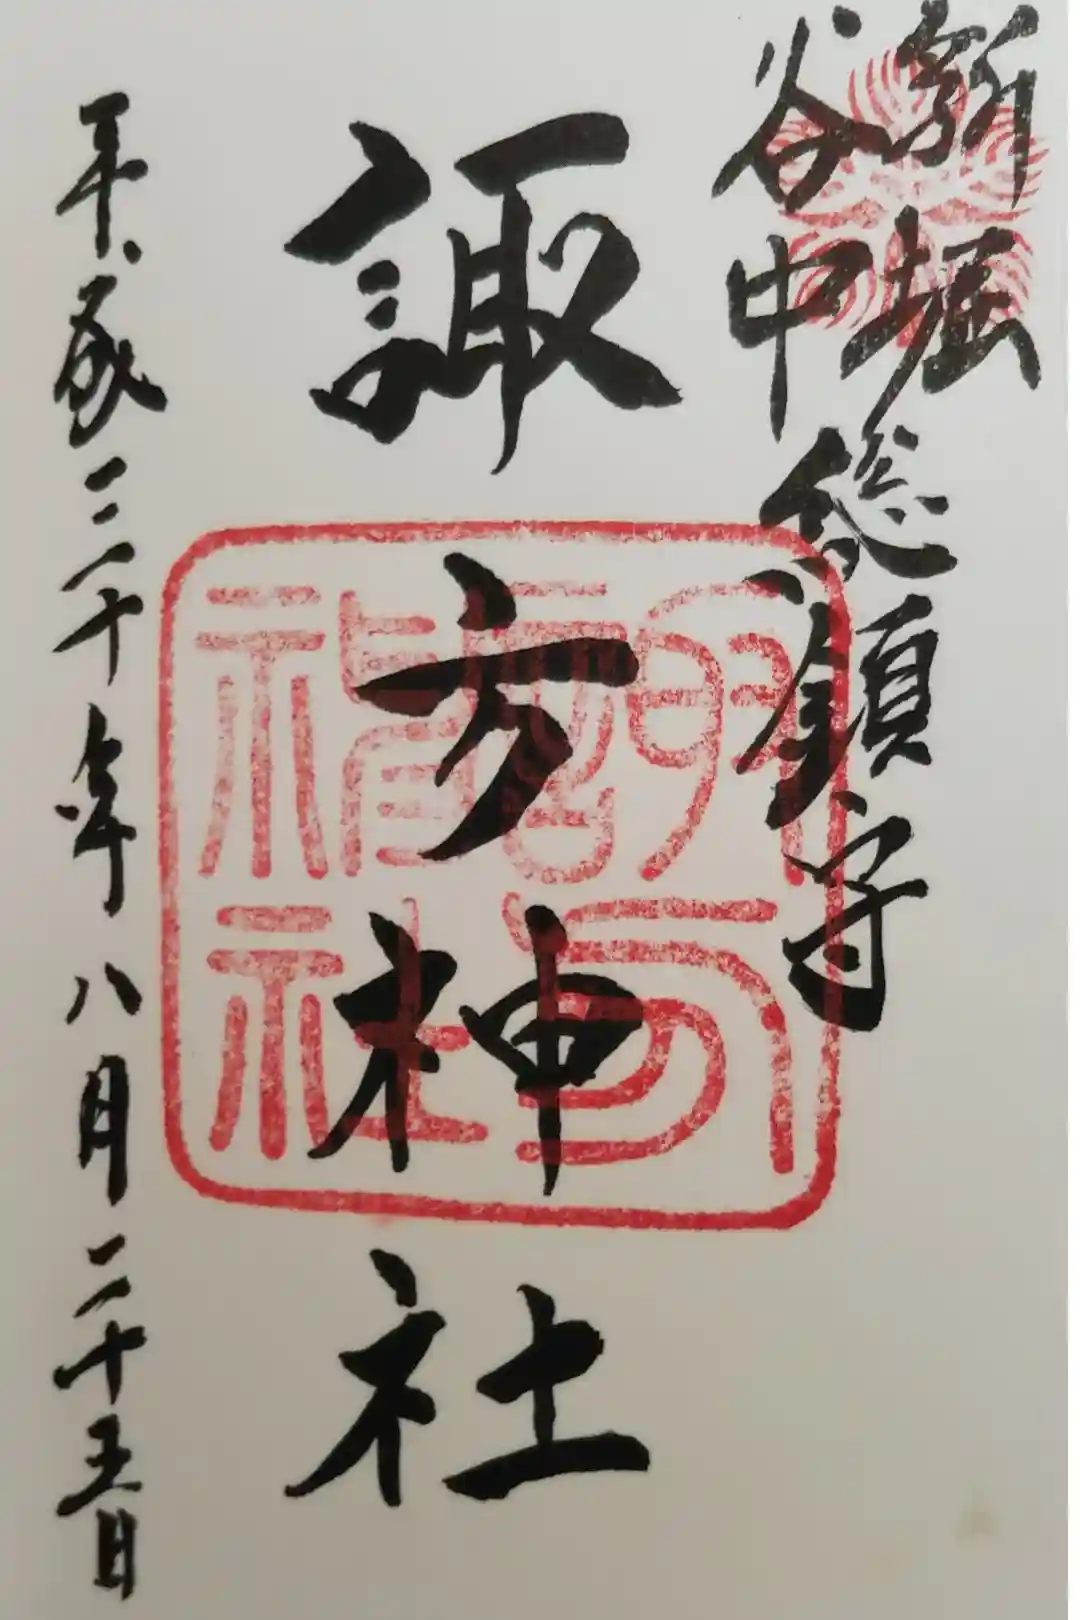 新堀
谷中
総鎮守
諏方神社
平成三十年八月二十五日